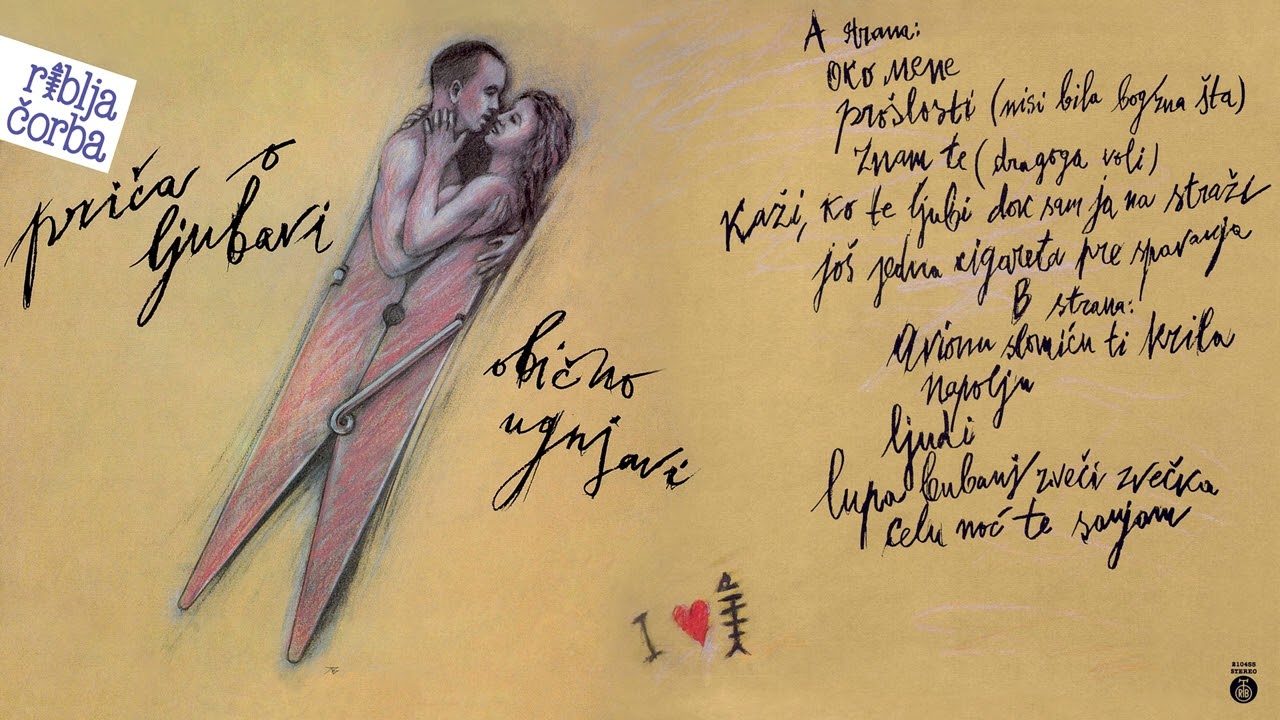 riblja
čorba
priča o
ljubavi
obično
ugnjavi
A strana:
oko mene
prošlosti (nisi bila bogzna šta)
znam te (drugoga voli)
Kaži, ko te ljubi dok sam ja na straži
još jedna cigareta pre spavanja
B strana:
Avionu slomiću ti krila
napolju
ljudi
lupa bubanj zveči zvečka
celu noć te sanjam
I
210455
STEREO
RTB